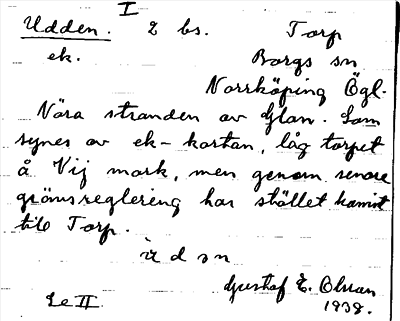 I
Udden. 2 bs. Torp
ek. Borgs sn
Norrköping Ögl.
Nära stranden av Glan. Som
synes av ek-kartan, låg torpet
å Vij mark, men genom senare
gränsreglering har stället kommit
till Torp.
ù d ə n
Gustaf E. Olsson
1938.
Le II